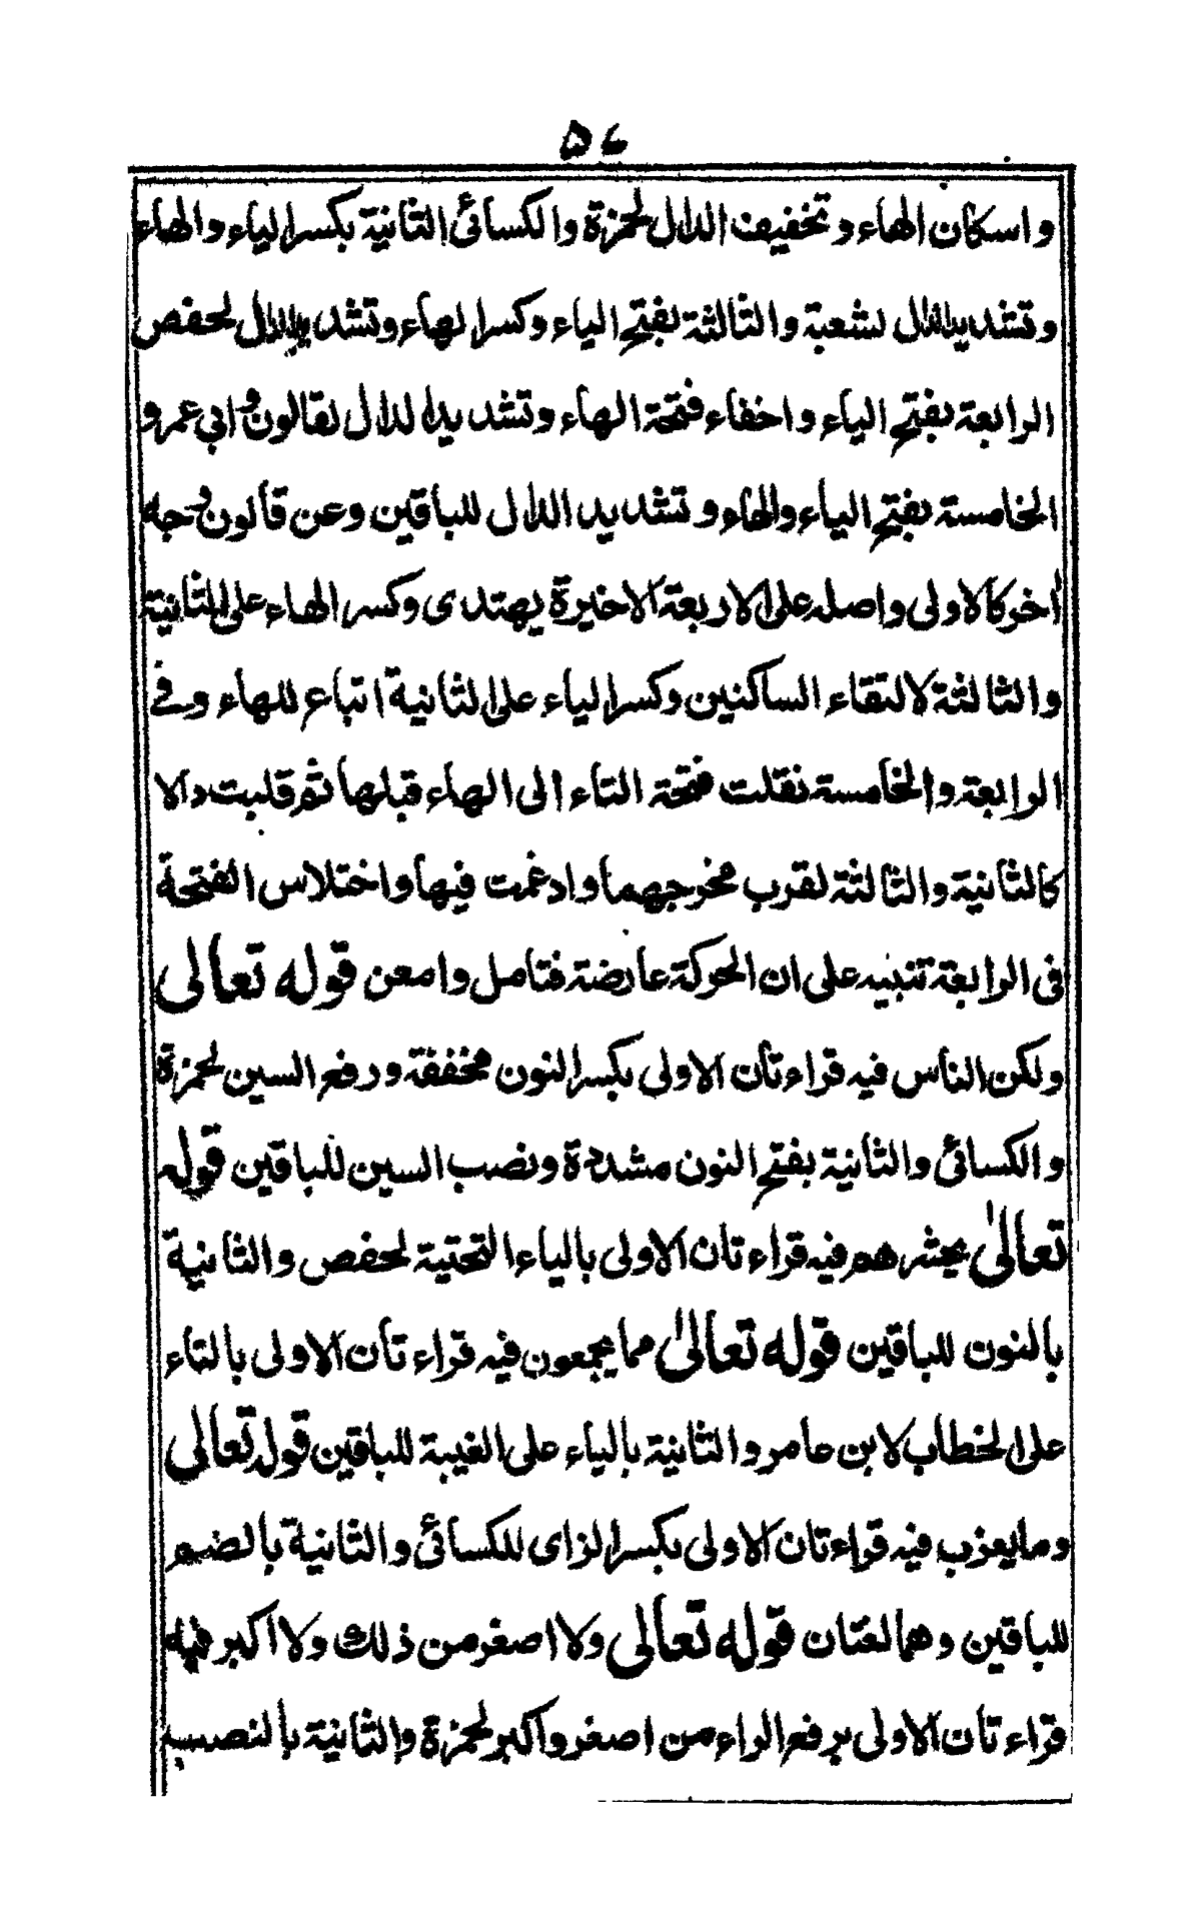 ۵۷
واسكان الهاء وتخفيف الدال لحمزة والكسائى الثانية بكسر الياء والهاء
وتشديد الدال لشعبة والثالثة بفتح الياء وكسر الهاء وتشديد الدال لحفص
الرابعة بفتح الياء واخفاء فتحة الهاء وتشديد الدال لقالون وابي عمرو
الخامسة بفتح الياء والهاء وتشديد الدال للباقين وعن قالون وجه
اخر كالاولى واصله على الاربعة الاخيرة يهتدى وكسر الهاء على الثانية
والثالثة لالتقاء الساكنين وكسر الياء على الثانية اتباع للهاء وفى
الرابعة والخامسة نقلت فتحة التاء الى الهاء قبلها ثم قلبت دالا
كالثانية والثالثة لقرب مخرجهما وادغمت فيها واختلاس الفتحة
فى الرابعة تنبيه على ان الحركة عارضة فتامل وامعن قوله تعالى
ولكن الناس فيه قراءتان الاولى بكسر النون مخففة ورفع السين لحمزة
والكسائى والثانية بفتح النون مشددة ونصب السين للباقين قوله
تعالىٰ يحشرهم فيه قراءتان الاولى بالياء التحتية لحفص والثانية
بالنون للباقين قوله تعالىٰ مما يجمعون فيه قراءتان الاولى بالتاء
على الخطاب لابن عامر والثانية بالياء على الغيبة للباقين قوله تعالى
وما يعزب فيه قراءتان الاولى بكسر الزاى للكسائى والثانية بالضم
للباقين وهما لغتان قوله تعالى ولا اصغر من ذلك ولا اكبر فيه
قراءتان الاولى برفع الراء من اصغر واكبر لحمزة والثانية بالنصب